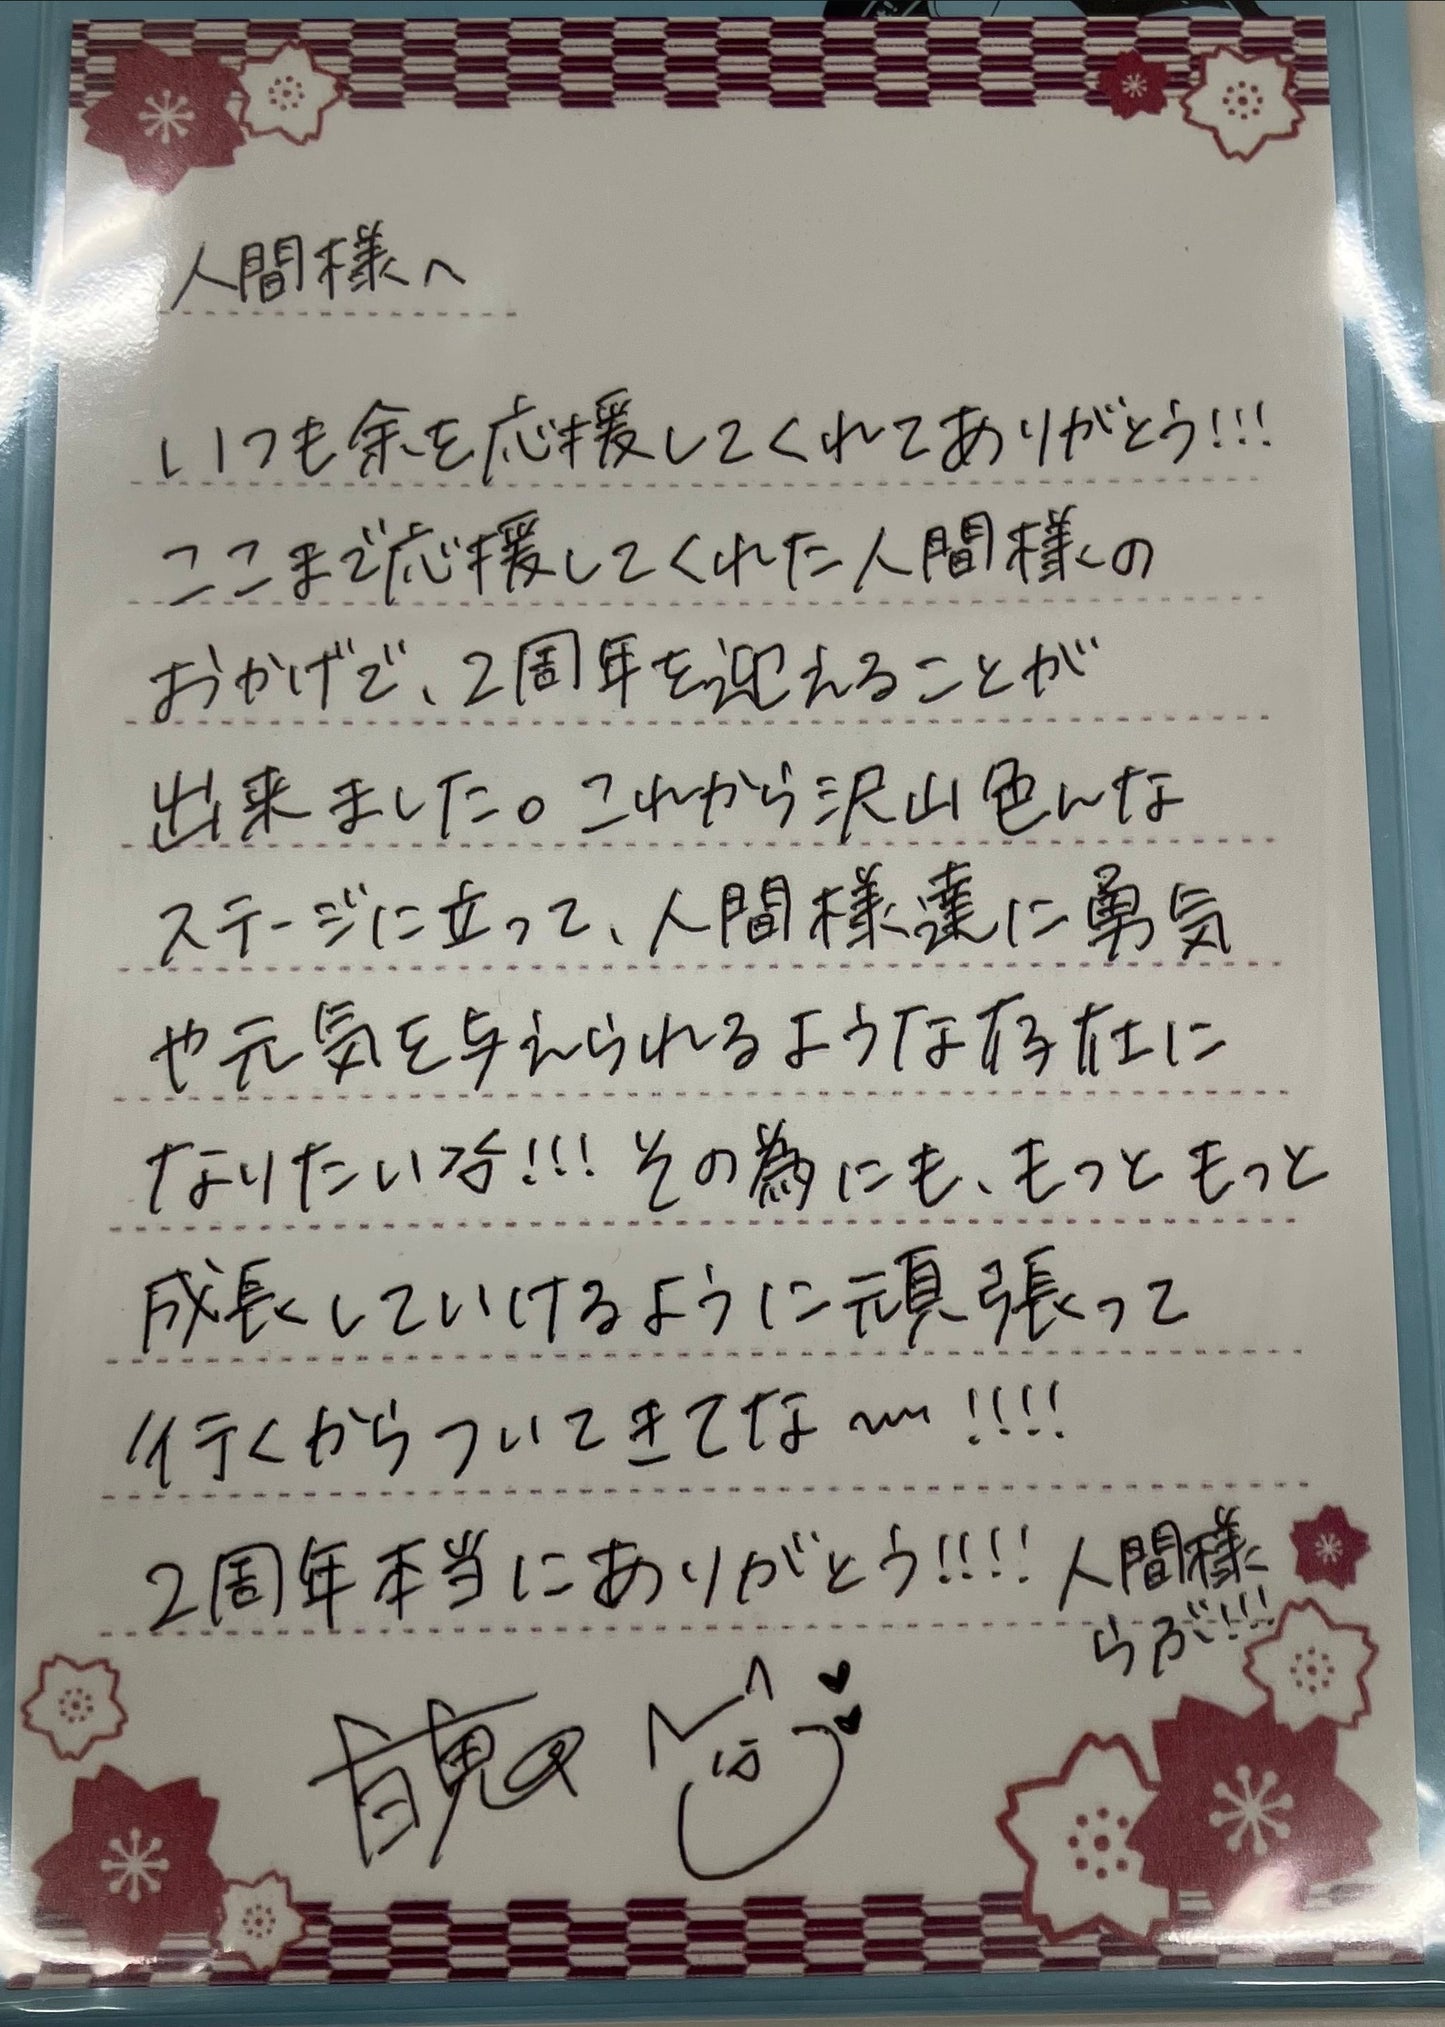 人間様へ
いつも余を応援してくれてありがとう!!!
ここまで応援してくれた人間様の
おかげで、2周年を迎えることが
出来ました。これから沢山色んな
ステージに立って、人間様達に勇気
や元気を与えられるような存在に
なりたい余!!! その為にも、もっともっと
成長していけるように頑張って
行くからついてきてな〜!!!!
2周年本当にありがとう!!!! 人間様
らぶ!!!